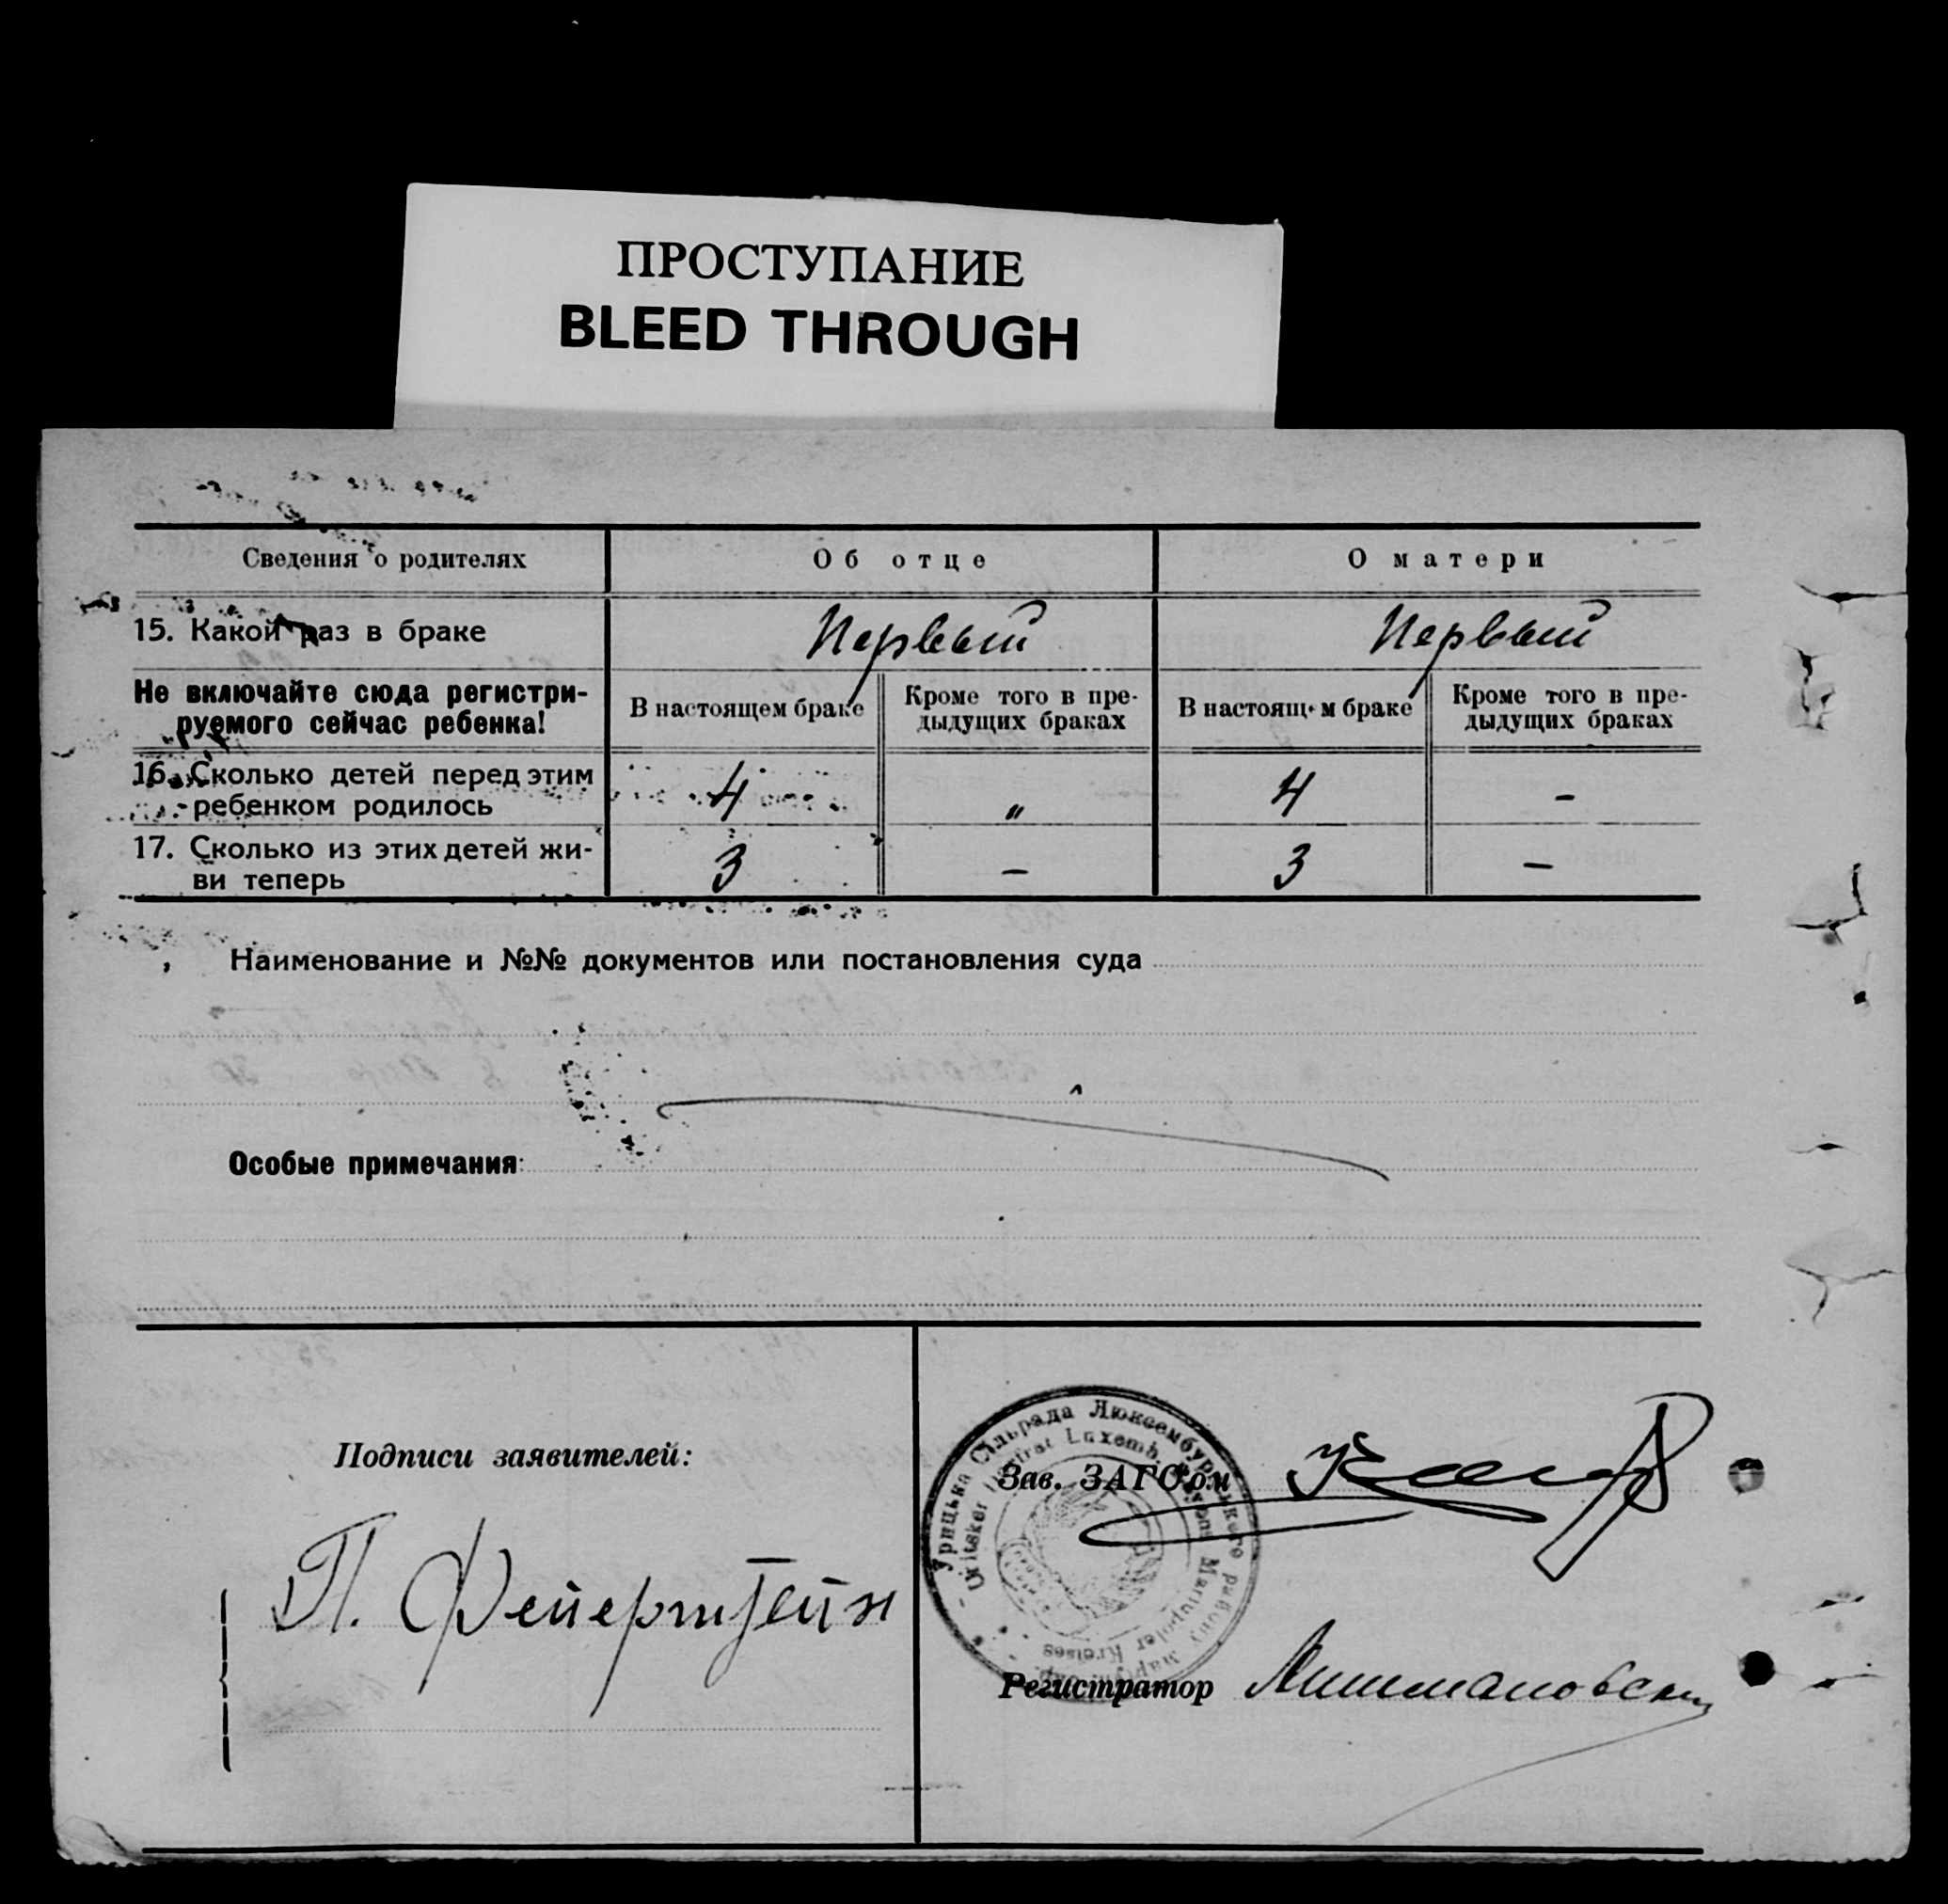 ПРОСТУПАНИЕ
BLEED THROUGH
Сведения о родителях Об отце О матери
15. Какой раз в браке Первый Первый
Не включайте сюда регистри-
руемого сейчас ребенка!
В настоящем браке
Кроме того в пре-
дыдущих браках
В настоящем браке
Кроме того в пре-
дыдущих браках
16. Сколько детей перед этим
ребенком родилось 4 " 4 -
17. Сколько из этих детей жи-
ви теперь 3 - 3 -
Наименование и №№ документов или постановления суда
Особые примечания:
Подписи заявителей:
П. Фейерштейн
Урицька Сільрада Люксембурзького району Маріуп. окр.
Uritsker Dorfrat Luxemb. Rayons Mariupoler Kreises
Зав. ЗАГС'ом
Регистратор